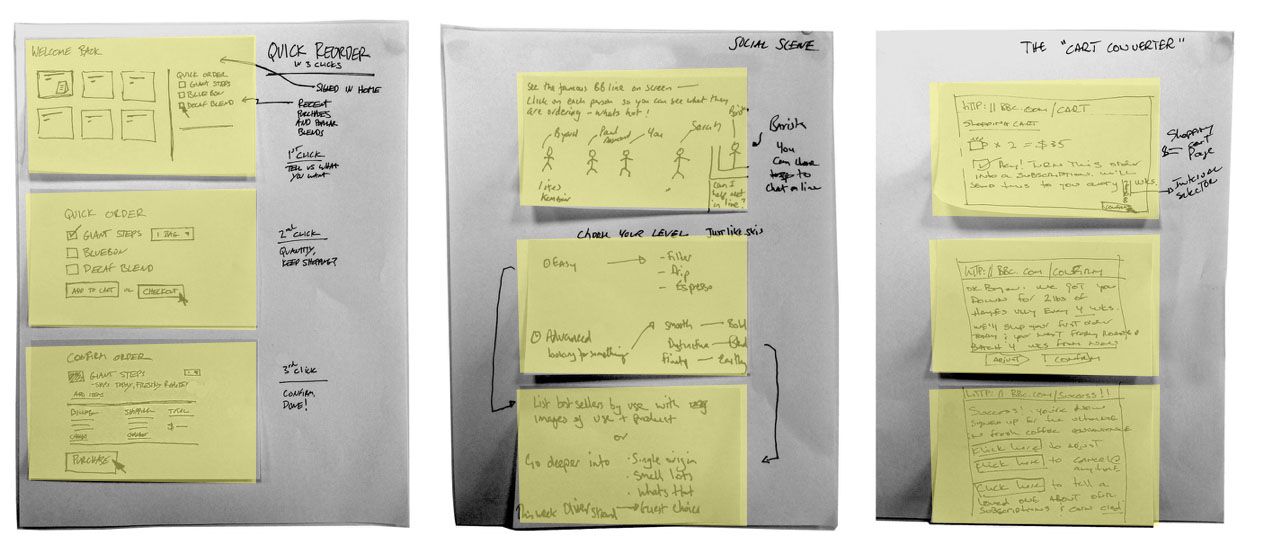 WELCOME BACK
QUICK ORDER
GIANT STEPS
BLUEBON
DECAF BLEND
QUICK REORDER
IN 3 CLICKS
SIGNED IN HOME
RECENT
PURCHASES
AND SIMILAR
BLENDS
1ST CLICK
TELL US WHAT
YOU WANT
QUICK ORDER
GIANT STEPS 1 BAG
BLUEBON
DECAF BLEND
ADD TO CART or CHECKOUT
2nd CLICK
QUANTITY,
KEEP SHOPPING?
CONFIRM ORDER
GIANT STEPS
SHIPS TODAY, FRESHLY ROASTED
ADD ITEMS
BILLING SHIPPING TOTAL
CHANGE CHANGE $
PURCHASE
3rd CLICK
CONFIRM,
DONE!
SOCIAL SCENE
See the famous BB line on screen
Click on each person so you can see what they
are ordering - whats hot!
Bryan Paul You Sarah Barista
likes
can I
help next
in line?
Barista
You
can
to
chat in line
CHOOSE YOUR LEVEL Just like skis
Easy - Filter
- Drip
- Espresso
Advanced Smooth Bold
looking for something Distinctive
Fruity Earthy
List best sellers by use with
images of use + product
or
Go deeper into • Single origin
• Small lots
• Whats Hot
This week Oliver Strand Guest Choice
THE "CART CONVERTER"
HTTP://BBC.COM/CART
SHOPPING CART
x 2 = $35
Hey! TURN THIS ORDER
INTO A SUBSCRIPTION. WE'LL
SEND THIS TO YOU EVERY WKS.
Shopping
cart
Page
Interval
Selector
HTTP://BBC.COM/CONFIRM
OK Bryan. WE GOT YOU
DOWN FOR 2 lbs OF
EVERY 4 WKS.
WE'LL SHIP YOUR FIRST ORDER
TODAY & YOUR NEXT FRESHLY ROASTED
BATCH 4 WKS FROM NOW!
ADJUST CONFIRM
HTTP://BBC.COM/SUCCESS!!
SUCCESS! YOU'RE NOW
SIGNED UP FOR THE ULTIMATE
IN FRESH COFFEE CONVENIENCE
Click here to ADJUST
Click here to CANCEL
ANYTIME
Click here to tell a
LOVED ONE ABOUT OUR
SUBSCRIPTIONS & EARN